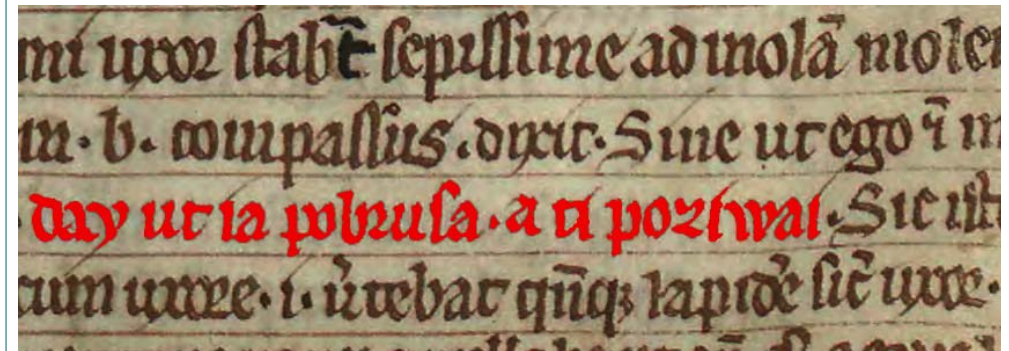 mi uxor stabat̄ sepissime ad molā mole
m · b · compassus · dixit · Sine ut ego ī m
day ut ia pobrusa · a ti poziwai · Sic ist
cum uxore · i · ūtebat qn̄qꝫ lapidē sic̄ uxor ·